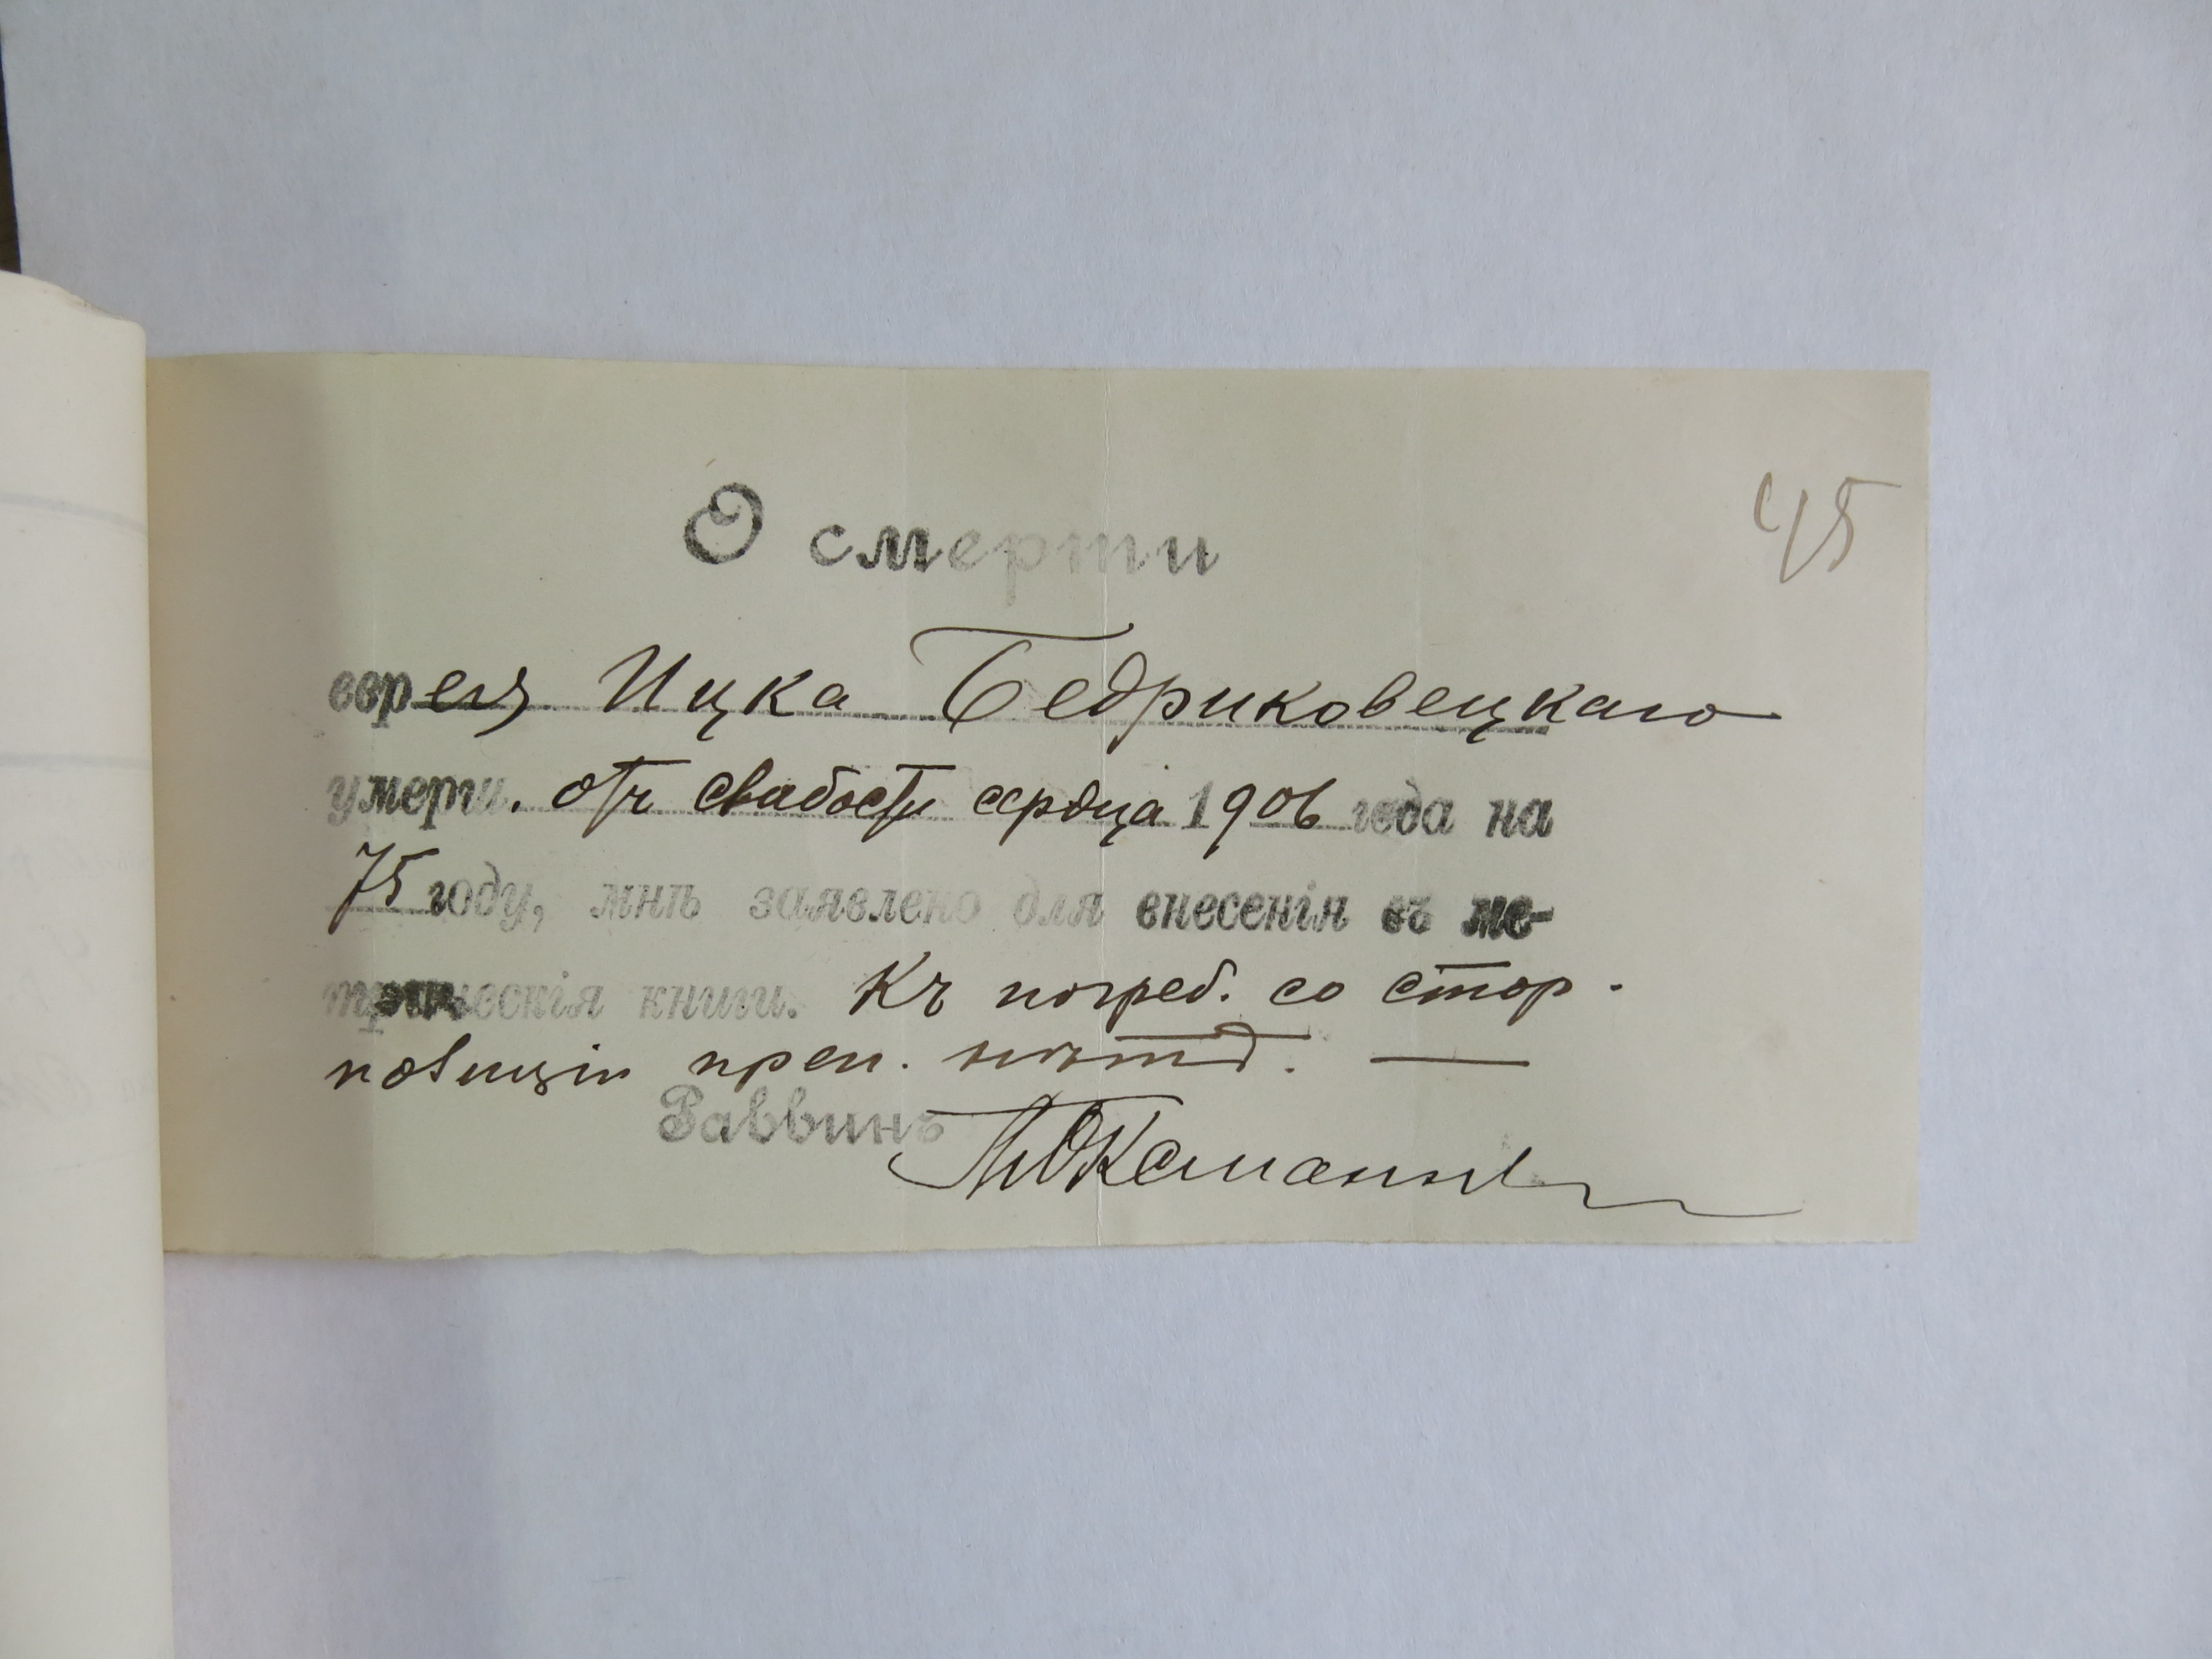 45
О смерти
еврея Ицка Бедриковецкаго
умерш. отъ слабости сердца 1906 года на
75 году, мнѣ заявлено для внесенія въ ме-
трическія книги. Къ погреб. со стор.
полиціи преп. нѣтъ.
Раввинъ